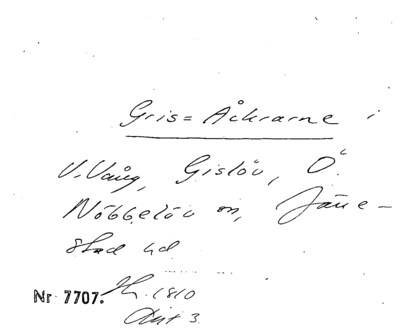 Gris=Åkrarne i
V. Vång, Gislöv, Ö.
Nöbbelöv sn, Järre-
stad hd
Nr 7707. H. 1810
Akt 3